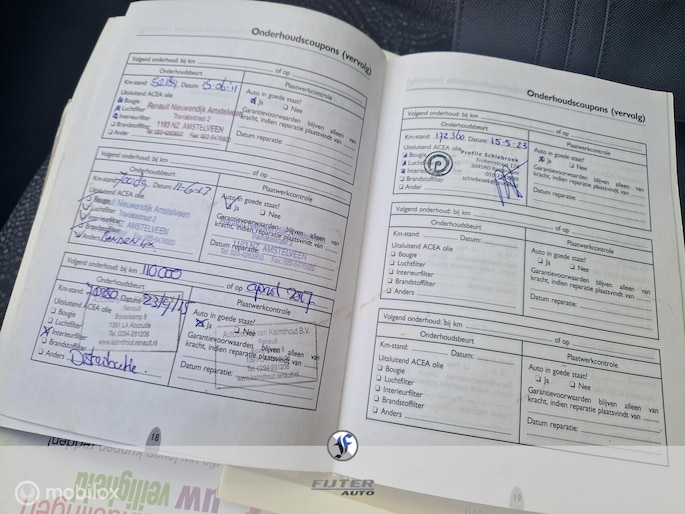 Onderhoudscoupons (vervolg)
Volgend onderhoud: bij km
of op
Onderhoudsbeurt
Plaatwerkcontrole
Km-stand
Datum: 15-06-'11
Auto in goede staat?
Ja
Nee
Uitsluitend ACEA olie
Bougie
Luchtfilter
Interieurfilter
Brandstoffilter
Ander
Renault Nieuwendijk Amstelveen
Traviatastraat 2
1193 NZ AMSTELVEEN
Garantievoorwaarden blijven alleen van
kracht, indien reparatie plaatsvindt van
Datum reparatie:
Volgend onderhoud: bij km
of op
Onderhoudsbeurt
Plaatwerkcontrole
Km-stand
Auto in goede staat?
Ja
Nee
Uitsluitend ACEA olie
Bougie
Luchtfilter
Interieurfilter
Brandstoffilter
Anders
Nieuwendijk Amstelveen
Traviatastraat 2
AMSTELVEEN
Garantievoorwaarden blijven alleen van
kracht, indien reparatie plaatsvindt van
Datum reparatie:
1193 NZ AMSTELVEEN
Volgend onderhoud: bij km 110.000
of op april 2017
Onderhoudsbeurt
Plaatwerkcontrole
Km-stand
Datum
Auto in goede staat?
Ja
Nee
Uitsluitend ACEA olie
Bougie
Luchtfilter
Interieurfilter
Brandstoffilter
Anders
Renault
Bovenkamp 8
1391 LA Abcoude
Tel. 0294-281206
www.kalmthout.renault.nl
van Kalmthout B.V.
Garantievoorwaarden blijven alleen van
kracht, indien reparatie plaatsvindt van
Datum reparatie:
18
Onderhoudscoupons (vervolg)
Volgend onderhoud: bij km
of op
Onderhoudsbeurt
Plaatwerkcontrole
Km-stand 172300 Datum: 15-5-23
Auto in goede staat?
Ja
Nee
Uitsluitend ACEA olie
Bougie
Luchtfilter
Interieurfilter
Brandstoffilter
Ander
Profile Schiebroek
Garantievoorwaarden blijven alleen van
kracht, indien reparatie plaatsvindt van
Datum reparatie:
Volgend onderhoud: bij km
of op
Onderhoudsbeurt
Plaatwerkcontrole
Km-stand:
Datum:
Auto in goede staat?
Ja
Nee
Uitsluitend ACEA olie
Bougie
Luchtfilter
Interieurfilter
Brandstoffilter
Anders
Garantievoorwaarden blijven alleen van
kracht, indien reparatie plaatsvindt van
Datum reparatie:
Volgend onderhoud: bij km
of op
Onderhoudsbeurt
Plaatwerkcontrole
Km-stand:
Datum:
Auto in goede staat?
Ja
Nee
Uitsluitend ACEA olie
Bougie
Luchtfilter
Interieurfilter
Brandstoffilter
Anders
Garantievoorwaarden blijven alleen van
kracht, indien reparatie plaatsvindt van
Datum reparatie:
19
uw
veiligheid
mobilox
F
FIJTER
AUTO